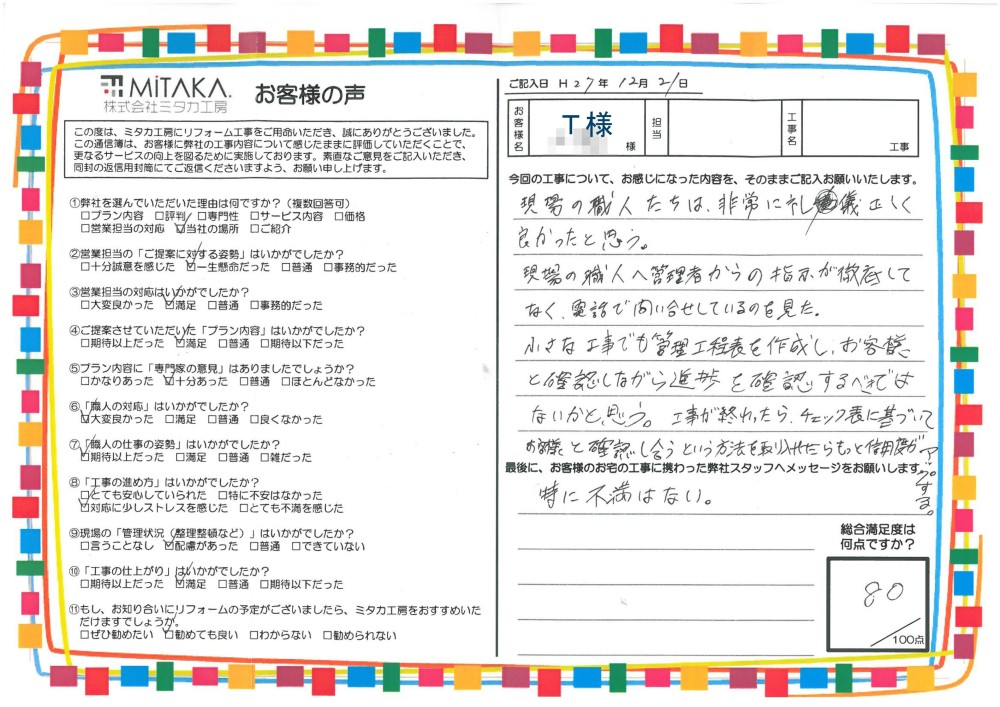 MiTAKA.
株式会社ミタカ工房
お客様の声
この度は、ミタカ工房にリフォーム工事をご用命いただき、誠にありがとうございました。
この通信簿は、お客様に弊社の工事内容について感じたままに評価していただくことで、
更なるサービスの向上を図るために実施しております。素直なご意見をご記入いただき、
同封の返信用封筒にてご返信くださいますよう、お願い申し上げます。
①弊社を選んでいただいた理由は何ですか？（複数回答可）
□プラン内容 □評判 □専門性 □サービス内容 □価格
□営業担当の対応 ☑当社の場所 □ご紹介
②営業担当の「ご提案に対する姿勢」はいかがでしたか？
□十分誠意を感じた ☑一生懸命だった □普通 □事務的だった
③営業担当の対応はいかがでしたか？
□大変良かった ☑満足 □普通 □事務的だった
④ご提案させていただいた「プラン内容」はいかがでしたか？
□期待以上だった ☑満足 □普通 □期待以下だった
⑤プラン内容に「専門家の意見」はありましたでしょうか？
□かなりあった ☑十分あった □普通 □ほとんどなかった
⑥「職人の対応」はいかがでしたか？
☑大変良かった □満足 □普通 □良くなかった
⑦「職人の仕事の姿勢」はいかがでしたか？
☑期待以上だった □満足 □普通 □雑だった
⑧「工事の進め方」はいかがでしたか？
□とても安心していられた □特に不安はなかった
☑対応に少しストレスを感じた □とても不満を感じた
⑨現場の「管理状況（整理整頓など）」はいかがでしたか？
□言うことなし ☑配慮があった □普通 □できていない
⑩「工事の仕上がり」はいかがでしたか？
□期待以上だった ☑満足 □普通 □期待以下だった
⑪もし、お知り合いにリフォームの予定がございましたら、ミタカ工房をおすすめいた
だけますでしょうか。
□ぜひ勧めたい ☑勧めても良い □わからない □勧められない
ご記入日 H27年 12月 21日
お客様名 T様 様 担当 工事名 工事
今回の工事について、お感じになった内容を、そのままご記入お願いいたします。
現場の職人たちは、非常に礼儀正しく
良かったと思う。
現場の職人へ管理者からの指示が徹底して
なく、電話で問い合せしているのを見た。
小さな工事でも管理工程表を作成し、お客様
と確認しながら進捗を確認するべきでは
ないかと、思う。工事が終わったら、チェック表に基づいて
お客様と確認し合うという方法を取り入れたらもっと信用度が
アップする。
最後に、お客様のお宅の工事に携わった弊社スタッフへメッセージをお願いします。
特に不満はない。
総合満足度は
何点ですか？
80
／100点